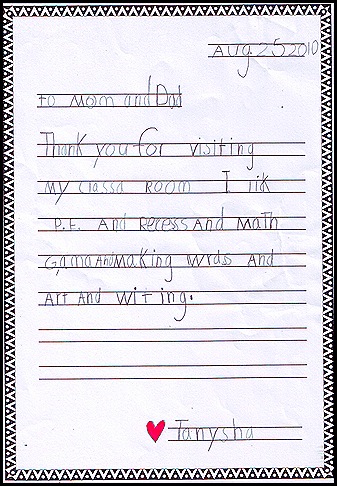 Aug 25 2010
to Mom and Dad
Thank you for visiting
My classa Room I lik
P.E. And Recess And Math
Gama And Making wrdss And
Art And witing.
Tanysha